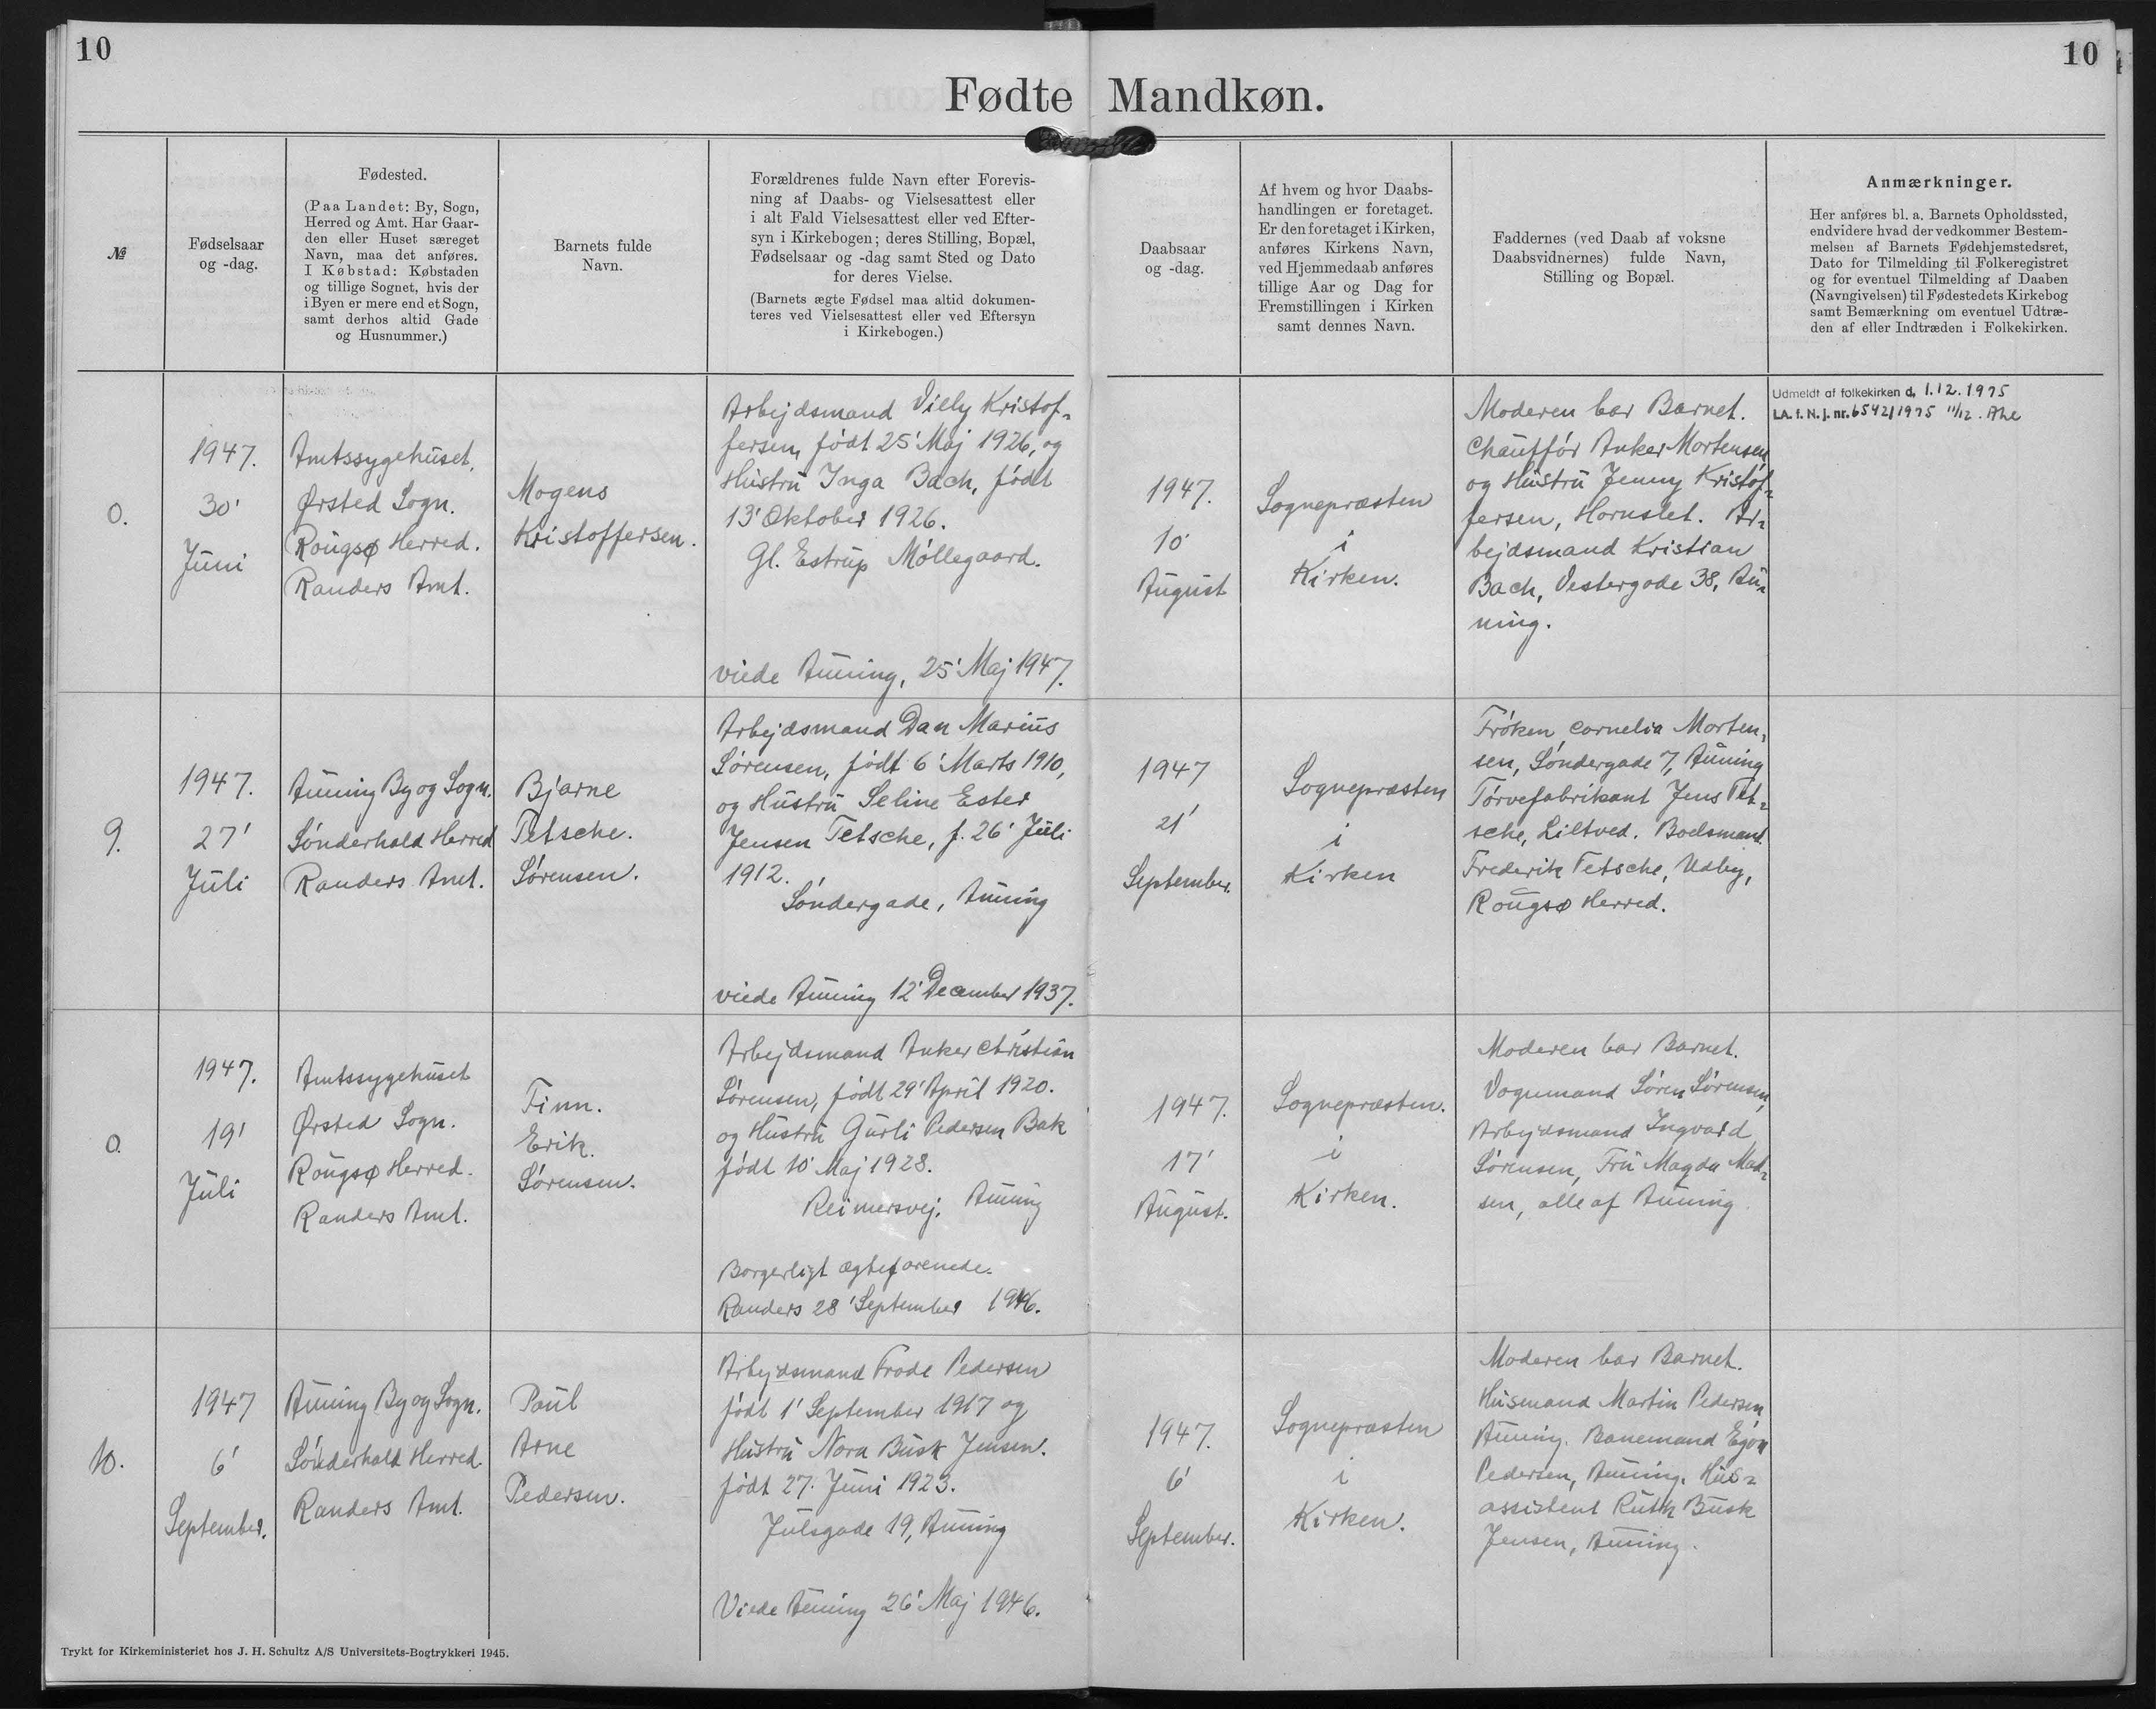 10
10
Fødte Mandkøn.
№
Fødselsaar
og -dag.
Fødested.
(Paa Landet: By, Sogn,
Herred og Amt. Har Gaar-
den eller Huset særeget
Navn, maa det anføres.
I Købstad: Købstaden
og tillige Sognet, hvis der
i Byen er mere end et Sogn,
samt derhos altid Gade
og Husnummer.)
Barnets fulde
Navn.
Forældrenes fulde Navn efter Forevis-
ning af Daabs- og Vielsesattest eller
i alt Fald Vielsesattest eller ved Efter-
syn i Kirkebogen; deres Stilling, Bopæl,
Fødselsaar og -dag samt Sted og Dato
for deres Vielse.
(Barnets ægte Fødsel maa altid dokumen-
teres ved Vielsesattest eller ved Eftersyn
i Kirkebogen.)
Daabsaar
og -dag.
Af hvem og hvor Daabs-
handlingen er foretaget.
Er den foretaget i Kirken,
anføres Kirkens Navn,
ved Hjemmedaab anføres
tillige Aar og Dag for
Fremstillingen i Kirken
samt dennes Navn.
Faddernes (ved Daab af voksne
Daabsvidnernes) fulde Navn,
Stilling og Bopæl.
Anmærkninger.
Her anføres bl. a. Barnets Opholdssted,
endvidere hvad der vedkommer Bestem-
melsen af Barnets Fødehjemstedsret,
Dato for Tilmelding til Folkeregistret
og for eventuel Tilmelding af Daaben
(Navngivelsen) til Fødestedets Kirkebog
samt Bemærkning om eventuel Udtræ-
den af eller Indtræden i Folkekirken.
0.
1947.
30'
Juni
Amtssygehuset,
Ørsted Sogn.
Rougsø Herred.
Randers Amt.
Mogens
Kristoffersen.
Arbejdsmand Villy Kristof-
fersen, født 25' Maj 1926, og
Hustru Inga Bach, født
13' Oktober 1926.
Gl. Estrup Møllegaard.
viede Auning, 25' Maj 1947.
1947.
10'
August
Sognepræsten
i
Kirken.
Moderen bar Barnet.
Chauffør Anker Mortensen
og Hustru Jenny Kristof-
fersen, Hornslet. Ar-
bejdsmand Kristian
Bach, Vestergade 38, Au-
ning.
Udmeldt af folkekirken d. 1.12.1975
LA. f. N. j. nr. 6542/1975 11/12. Ahe
9.
1947.
27'
Juli
Auning By og Sogn.
Sønderhald Herred
Randers Amt.
Bjarne
Tetsche.
Sørensen.
Arbejdsmand Dan Marius
Sørensen, født 6' Marts 1910,
og Hustru Seline Ester
Jensen Tetsche, f. 26' Juli
1912.
Søndergade, Auning
viede Auning 12' December 1937.
1947
21'
September.
Sognepræsten
i
Kirken
Frøken Cornelia Morten-
sen, Søndergade 7, Auning
Tørvefabrikant Jens Tet-
sche, Liltved. Boelsmand.
Frederik Tetsche, Udby,
Rougsø Herred.
0.
1947.
19'
Juli
Amtssygehuset
Ørsted Sogn.
Rougsø Herred.
Randers Amt.
Finn.
Erik.
Sørensen.
Arbejdsmand Anker Christian
Sørensen, født 29' April 1920.
og Hustru Gurli Pedersen Bak
født 10' Maj 1928.
Reimersvej. Auning
Borgerligt ægteforenede.
Randers 28' September 1946.
1947.
17'
August.
Sognepræsten.
i
Kirken.
Moderen bar Barnet.
Vognmand Søren Sørensen,
Arbejdsmand Ingvard
Sørensen, Fru Magda Mad-
sen, alle af Auning
10.
1947
6'
September.
Auning By og Sogn.
Sønderhald Herred.
Randers Amt.
Poul
Arne
Pedersen.
Arbejdsmand Frode Pedersen
født 1' September 1917 og
Hustru Nora Busk Jensen.
født 27. Juni 1923.
Julsgade 19, Auning
Viede Auning 26' Maj 1946.
1947.
6'
September.
Sognepræsten
i
Kirken.
Moderen bar Barnet.
Husmand Martin Pedersen
Auning. Banemand Egon
Pedersen, Auning. Hus-
assistent Ruth Busk
Jensen, Auning.
Trykt for Kirkeministeriet hos J. H. Schultz A/S Universitets-Bogtrykkeri 1945.